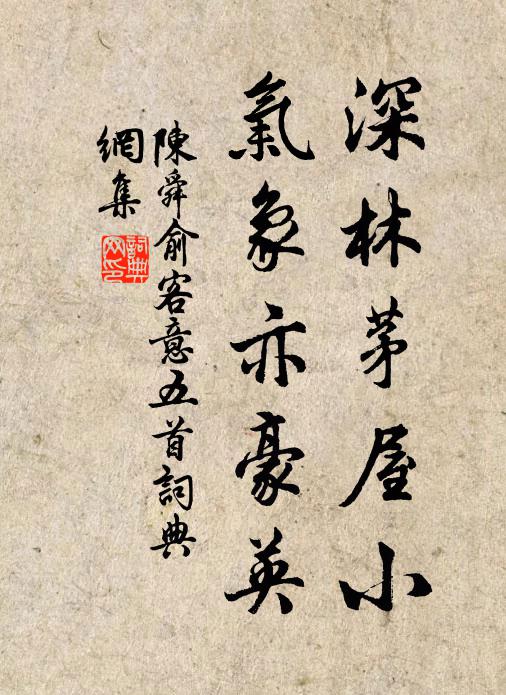 深林茅屋小
氣象亦豪英
陳舜俞客意五首詞典
網集
詞典网印